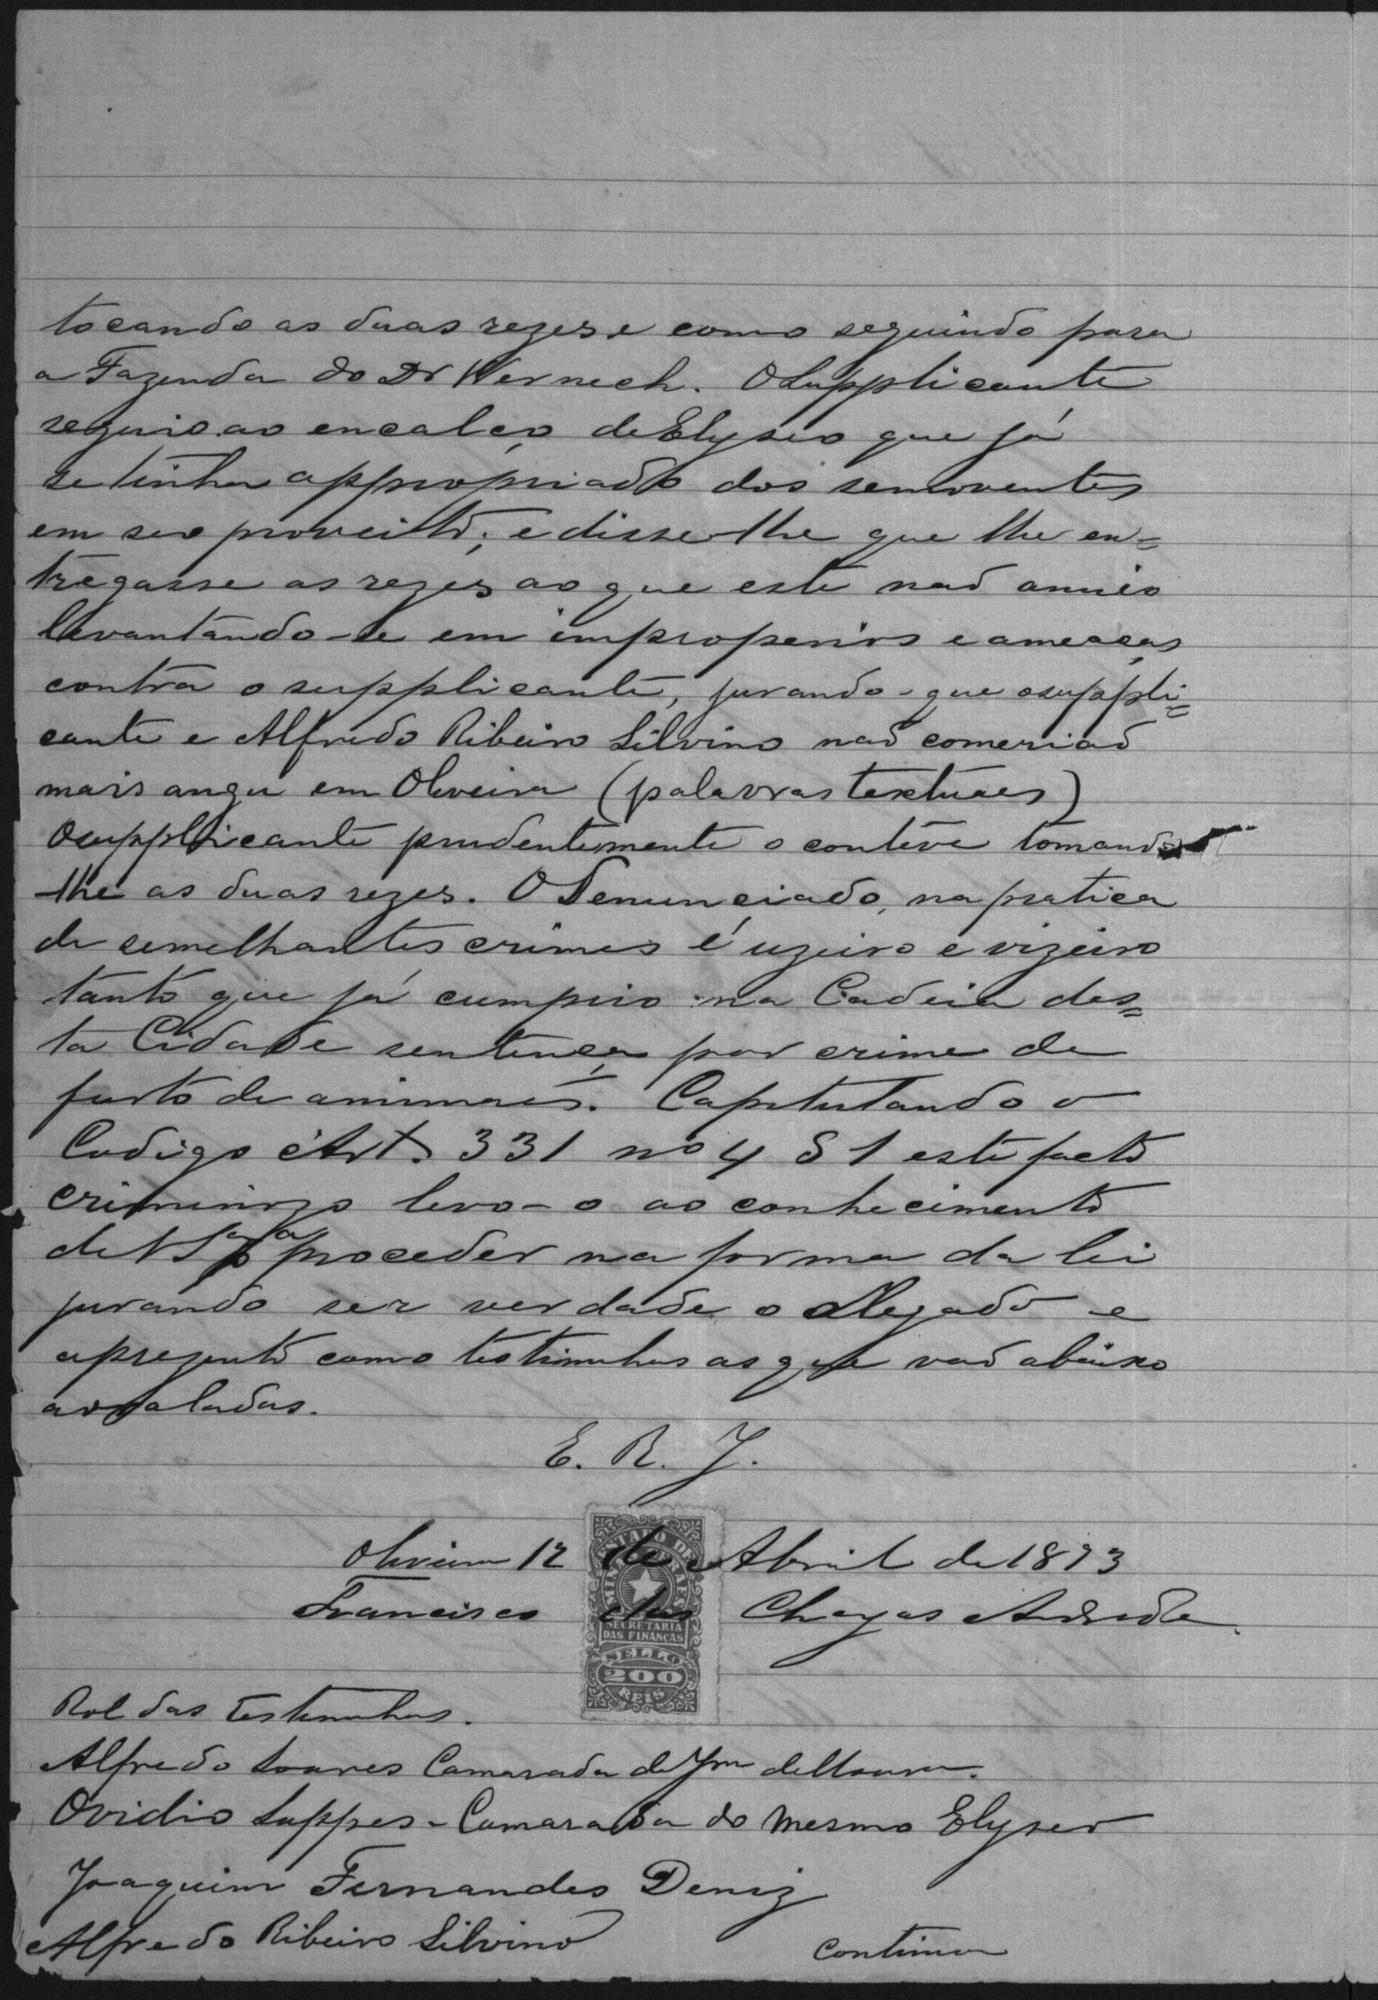 tocando as duas rezes e como seguindo para
a Fazenda do Dr Werneck. O Supplicante
seguio ao encalço de Elyseo que já
se tinha appropriado dos semoventes
em seo proveito; e disse-lhe que lhe en=
tregasse as rezes ao que este naõ annuio
levantando-se em improperios e ameaças
contra o supplicante, jurando-que o suppli=
cante e Alfredo Ribeiro Silvino naõ comeriaõ
mais angu em Oliveira (palavras textuaes)
O supplicante prudentemente o conteve tomando
-lhe as duas rezes. O Denunciado, na pratica
de semelhantes crimes é uzeiro e vizeiro
tanto que já cumprio na Cadeia des=
ta Cidade sentença por crime de
furto de animaes. Capitulando o
Codigo Art. 331 nº 4 § 1 este facto
criminozo levo-o ao conhecimento
de V Sª pª proceder na forma da lei
jurando ser verdade o allegado e
aprezento como testimunhas as que vaõ abaixo
arroladas.
E. R. J.
Oliveira 12 de Abril de 1893
Francisco das Chagas Andrade.
ESTADO DE
MINAS GERAES
SECRETARIA
DAS FINANÇAS
SELLO
200
REIS
Rol das testimunhas.
Alfredo Soares Camarada de Jm de Moura.
Ovidio Loppes - Camarada do mesmo Elyseo
Joaquim Fernandes Deniz
Alfredo Ribeiro Silvino
continua